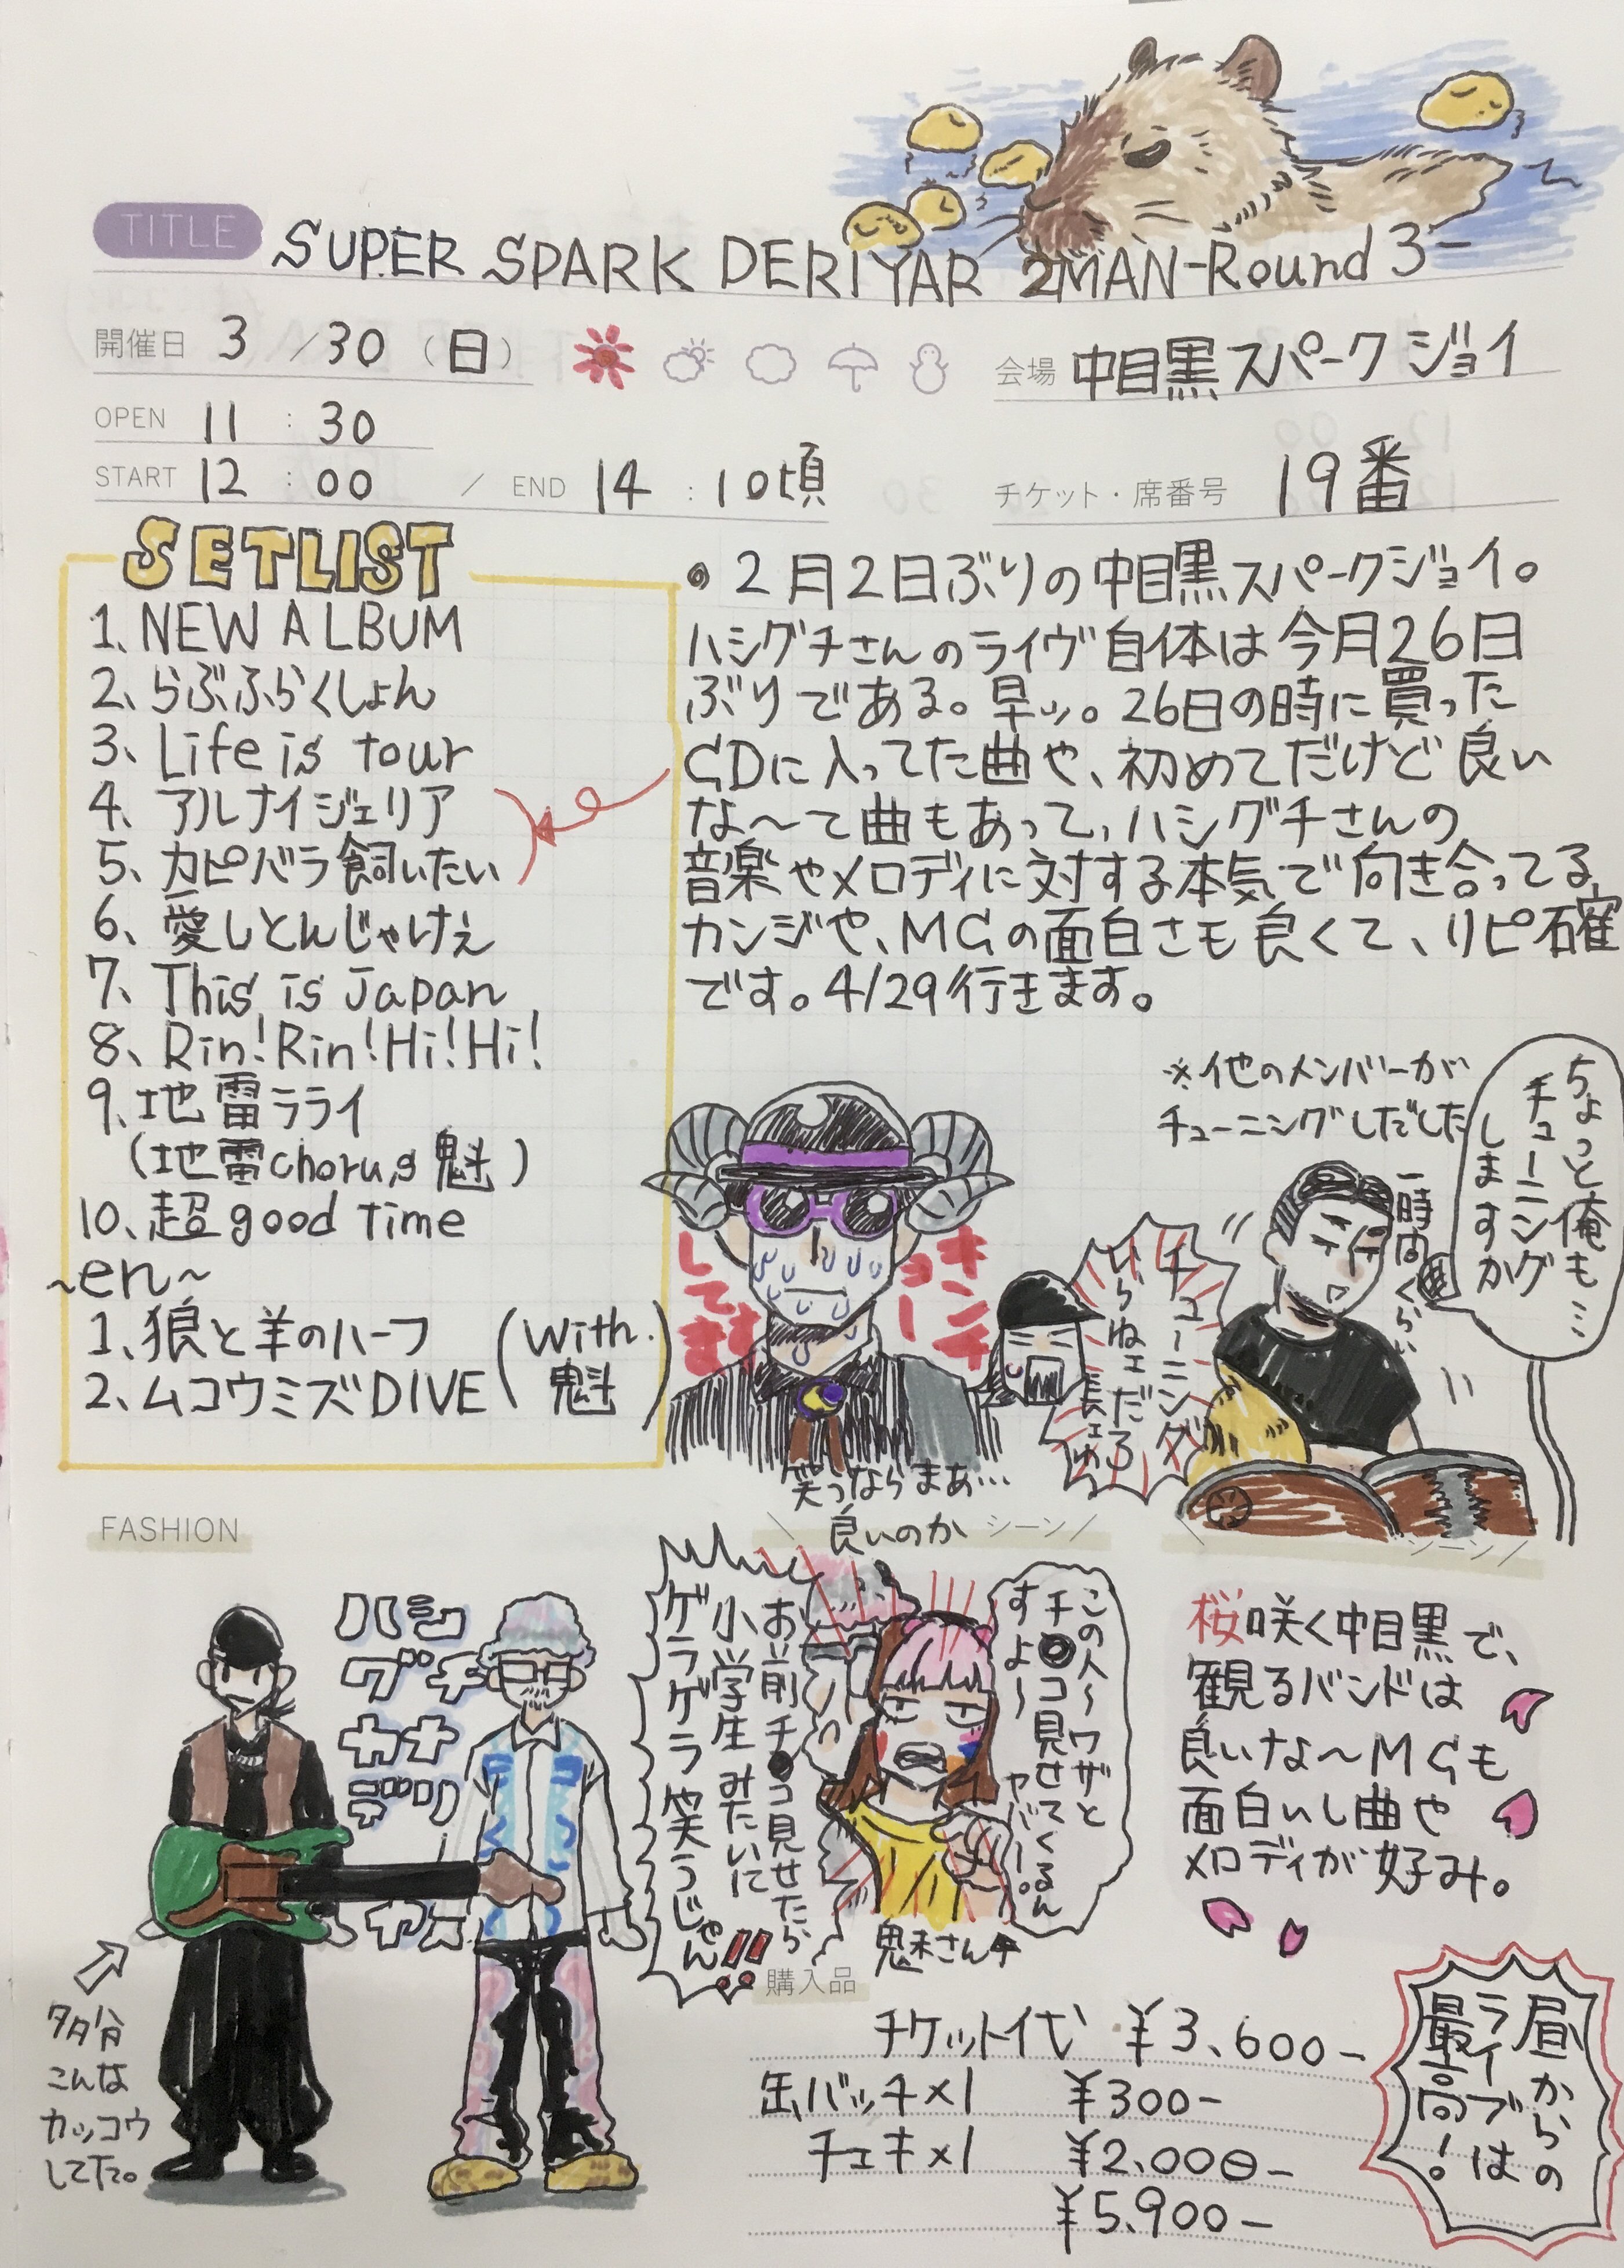 TITLE SUPER SPARK DERIYAR 2MAN-Round 3-
開催日 3/30(日)
会場 中目黒スパークジョイ
OPEN 11:30
START 12:00 / END 14:10頃
チケット・席番号 19番
SETLIST
1、NEW ALBUM
2、らぶふらくしょん
3、Life is tour
4、アルナイジェリア
5、カピバラ飼いたい
6、愛しとんじゃけぇ
7、This is Japan
8、Rin!Rin!Hi!Hi!
9、地雷ラライ
(地雷chorus魁)
10、超good Time
~en~
1、狼と羊のハーフ
2、ムコウミズDIVE
(With.
魁)
◎2月2日ぶりの中目黒スパークジョイ。
ハシグチさんのライヴ自体は今月26日
ぶりである。早ッ。26日の時に買った
CDに入ってた曲や、初めてだけど良い
な〜て曲もあって、ハシグチさんの
音楽やメロディに対する本気で向き合ってる
カンジや、MCの面白さも良くて、リピ確
です。4/29行きます。
※他のメンバーが
チューニングしだした
ちょっと俺も…
チューニング
しますか
一時間くらい
チューニング
いらねェだろ
キンチョー
してます
笑うならまあ…
良いのか
シーン
シーン
FASHION
ハシグチカナデリヤ
多分
こんな
カッコウ
してた。
お前チ●コ見せたら
小学生みたいに
ゲラゲラ笑うじゃん!!
この人〜ワザと
チ●コ見せてくるん
すよ〜 ヤバー。
魁さん
桜咲く中目黒で、
観るバンドは
良いな〜MCも
面白いし曲や
メロディが好み。
購入品
チケット代 ¥3,600-
缶バッチ×1 ¥300-
チェキ×1 ¥2,000-
¥5,900-
昼からの
ライブは
最高!